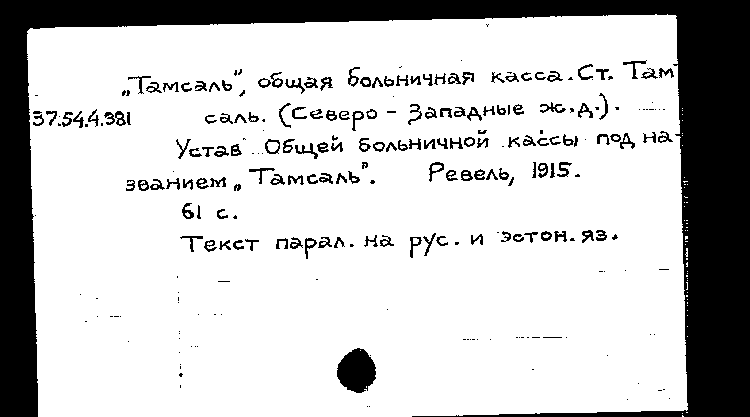 „Тамсаль“, общая больничная касса. Ст. Там-
37.54.4.381 саль. (Северо-Западные ж.д.).
Устав Общей больничной кассы под на-
званием „Тамсаль“. Ревель, 1915.
61 с.
Текст парал. на рус. и эстон. яз.